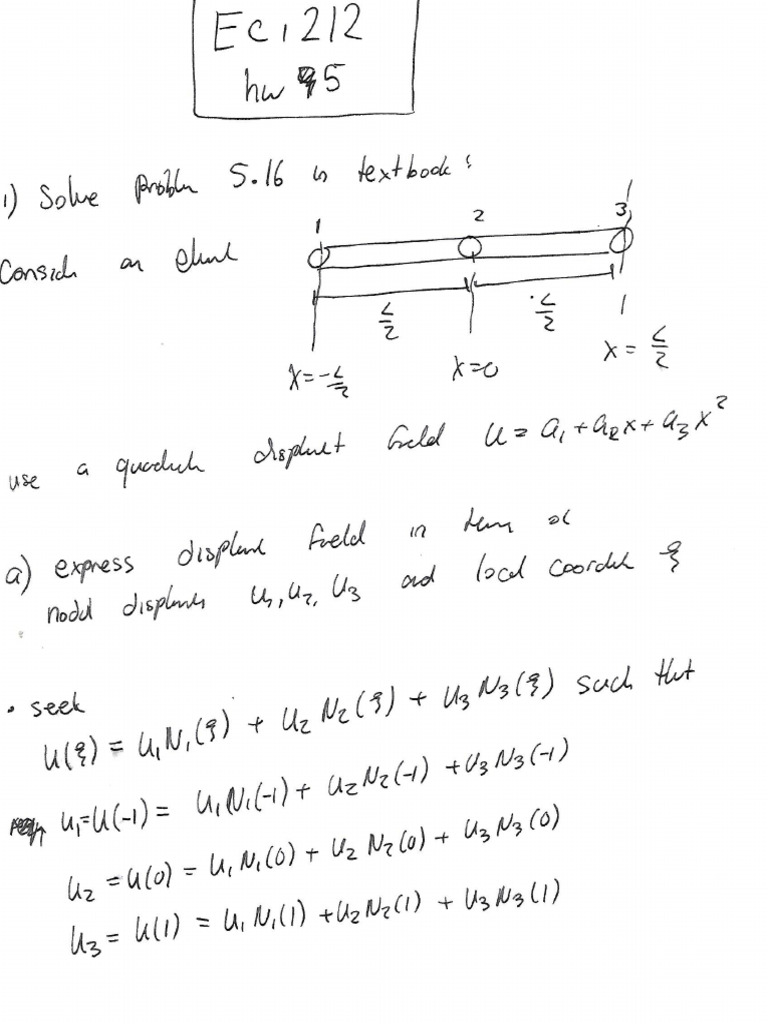 Eci 212
hw 5
1) Solve problem 5.16 in textbook:
1 2 3
Consider an element
L/2 L/2
x=-L/2 x=0 x = L/2
use a quadratic displacement field u = a₁ + a₂x + a₃x²
a) express displacement field in terms of
nodal displacements u₁, u₂, u₃ and local coordinate ξ
• seek
u(ξ) = u₁N₁(ξ) + u₂N₂(ξ) + u₃N₃(ξ) such that
u₁=u(-1) = u₁N₁(-1) + u₂N₂(-1) + u₃N₃(-1)
u₂ = u(0) = u₁N₁(0) + u₂N₂(0) + u₃N₃(0)
u₃ = u(1) = u₁N₁(1) + u₂N₂(1) + u₃N₃(1)